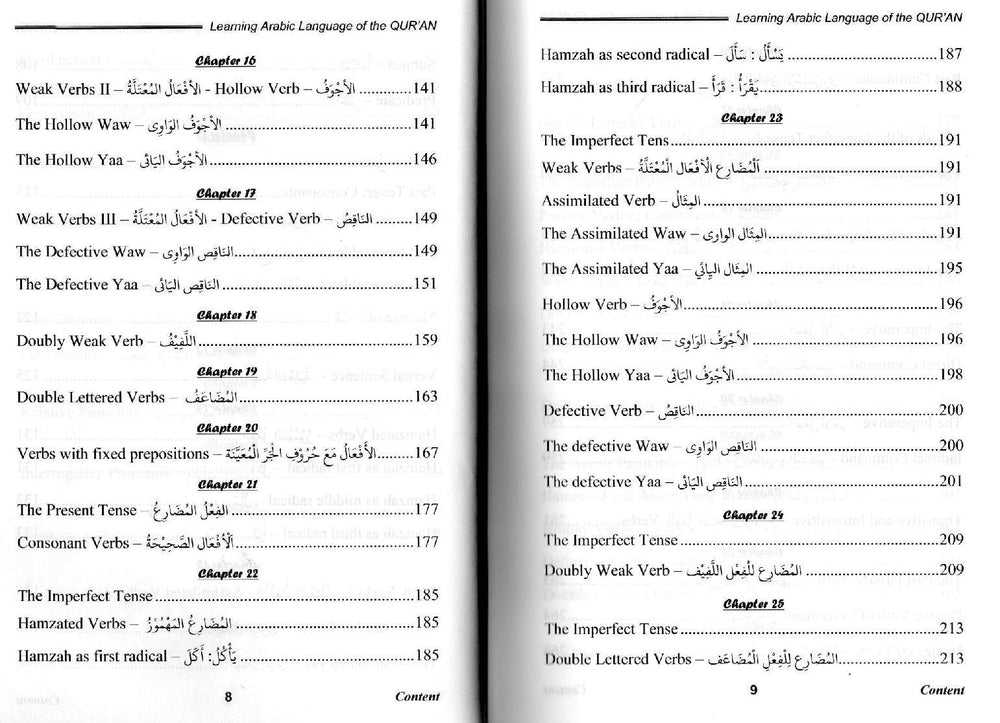 Learning Arabic Language of the QUR'AN
Chapter 16
Weak Verbs II – الأَفْعَالُ المُعْتَلَّةُ - Hollow Verb – الأَجْوَفُ ............141
The Hollow Waw – الأَجْوَفُ الوَاوِى ............141
The Hollow Yaa – الأَجْوَفُ اليَائى ............146
Chapter 17
Weak Verbs III – الأَفْعَالُ المُعْتَلَّةُ - Defective Verb – النَاقِصُ ........149
The Defective Waw – النَاقِص الوَاوِى ............149
The Defective Yaa – النَاقِص اليَائى ............151
Chapter 18
Doubly Weak Verb – اللَّفِيْفُ ............159
Chapter 19
Double Lettered Verbs – المُضَاعَفُ ............163
Chapter 20
Verbs with fixed prepositions – الأَفْعَال مَعَ حُرُوْفِ الجَرِّ المُعَيَّنَة ........167
Chapter 21
The Present Tense – الفِعْلُ المُضَارِعُ ............177
Consonant Verbs – اَلْأَفْعَال الصَّحِيْحَةُ ............177
Chapter 22
The Imperfect Tense ............185
Hamzated Verbs – المُضَارِعُ المَهْمُوْزُ ............185
Hamzah as first radical – يَأْكُلُ: أَكَلَ ............185
8
Content
Learning Arabic Language of the QUR'AN
Hamzah as second radical – يَسْأَلُ : سَأَلَ ............187
Hamzah as third radical – يَقْرَأُ : قَرَأَ ............188
Chapter 23
The Imperfect Tens............191
Weak Verbs – اَلْمُضَارِع الْأَفْعَال المُعْتَلَّةُ ............191
Assimilated Verb – المِثَالُ ............191
The Assimilated Waw – المِثَال الواوى ............191
The Assimilated Yaa – المِثَال اليِائي ............195
Hollow Verb – الأَجْوَفُ ............196
The Hollow Waw – الأَجْوَفُ الوَاوِى ............196
The Hollow Yaa – الأَجْوَفُ اليَائى ............198
Defective Verb – النَاقِصُ ............200
The defective Waw – النَاقِص الوَاوِى ............200
The defective Yaa – النَاقِص اليَائى ............201
Chapter 24
The Imperfect Tense ............209
Doubly Weak Verb – المُضَارِع لِلْفِعْل اللَّفِيْف ............209
Chapter 25
The Imperfect Tense ............213
Double Lettered Verbs – المُضَارِع لِلْفِعْلِ الْمُضَاعَف ............213
9
Content